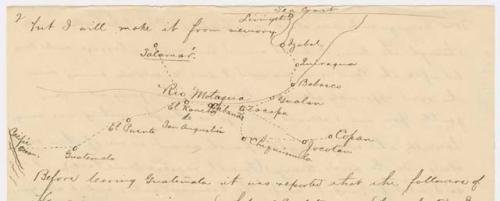 2
but I will make it from memory
Sea Coast
Livingst
Izabal
Salamar.
Iupaqua
Babasco
Rio Motagua
Gualan
El Rancho
Zacapa
de
San Augustin
El Puente
Copan
Jocotan
Chiquimula
Guatemala
Before leaving Guatemala it was reported that the followers of